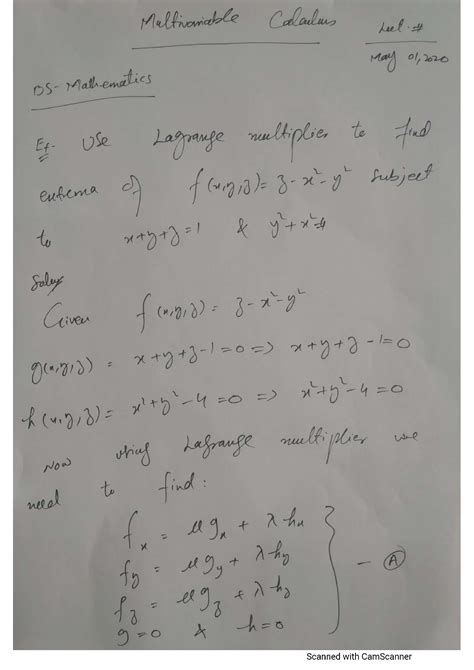 Multivariable Calculus
Lect-#
May 01, 2020
BS-Mathematics
Ex. Use Lagrange multiplier to find
extrema of f(x,y,z) = z-x²-y² subject
to x+y+z=1 & y²+x²=4
Given f(x,y,z) = z-x²-y²
g(x,y,z) = x+y+z-1=0 => x+y+z-1=0
h(x,y,z) = x²+y²-4=0 => x²+y²-4=0
Now using Lagrange multiplier we
need to find:
fx = μgx + λhx
fy = μgy + λhy
fz = μgz + λhz
g=0 & h=0
- A
Scanned with CamScanner